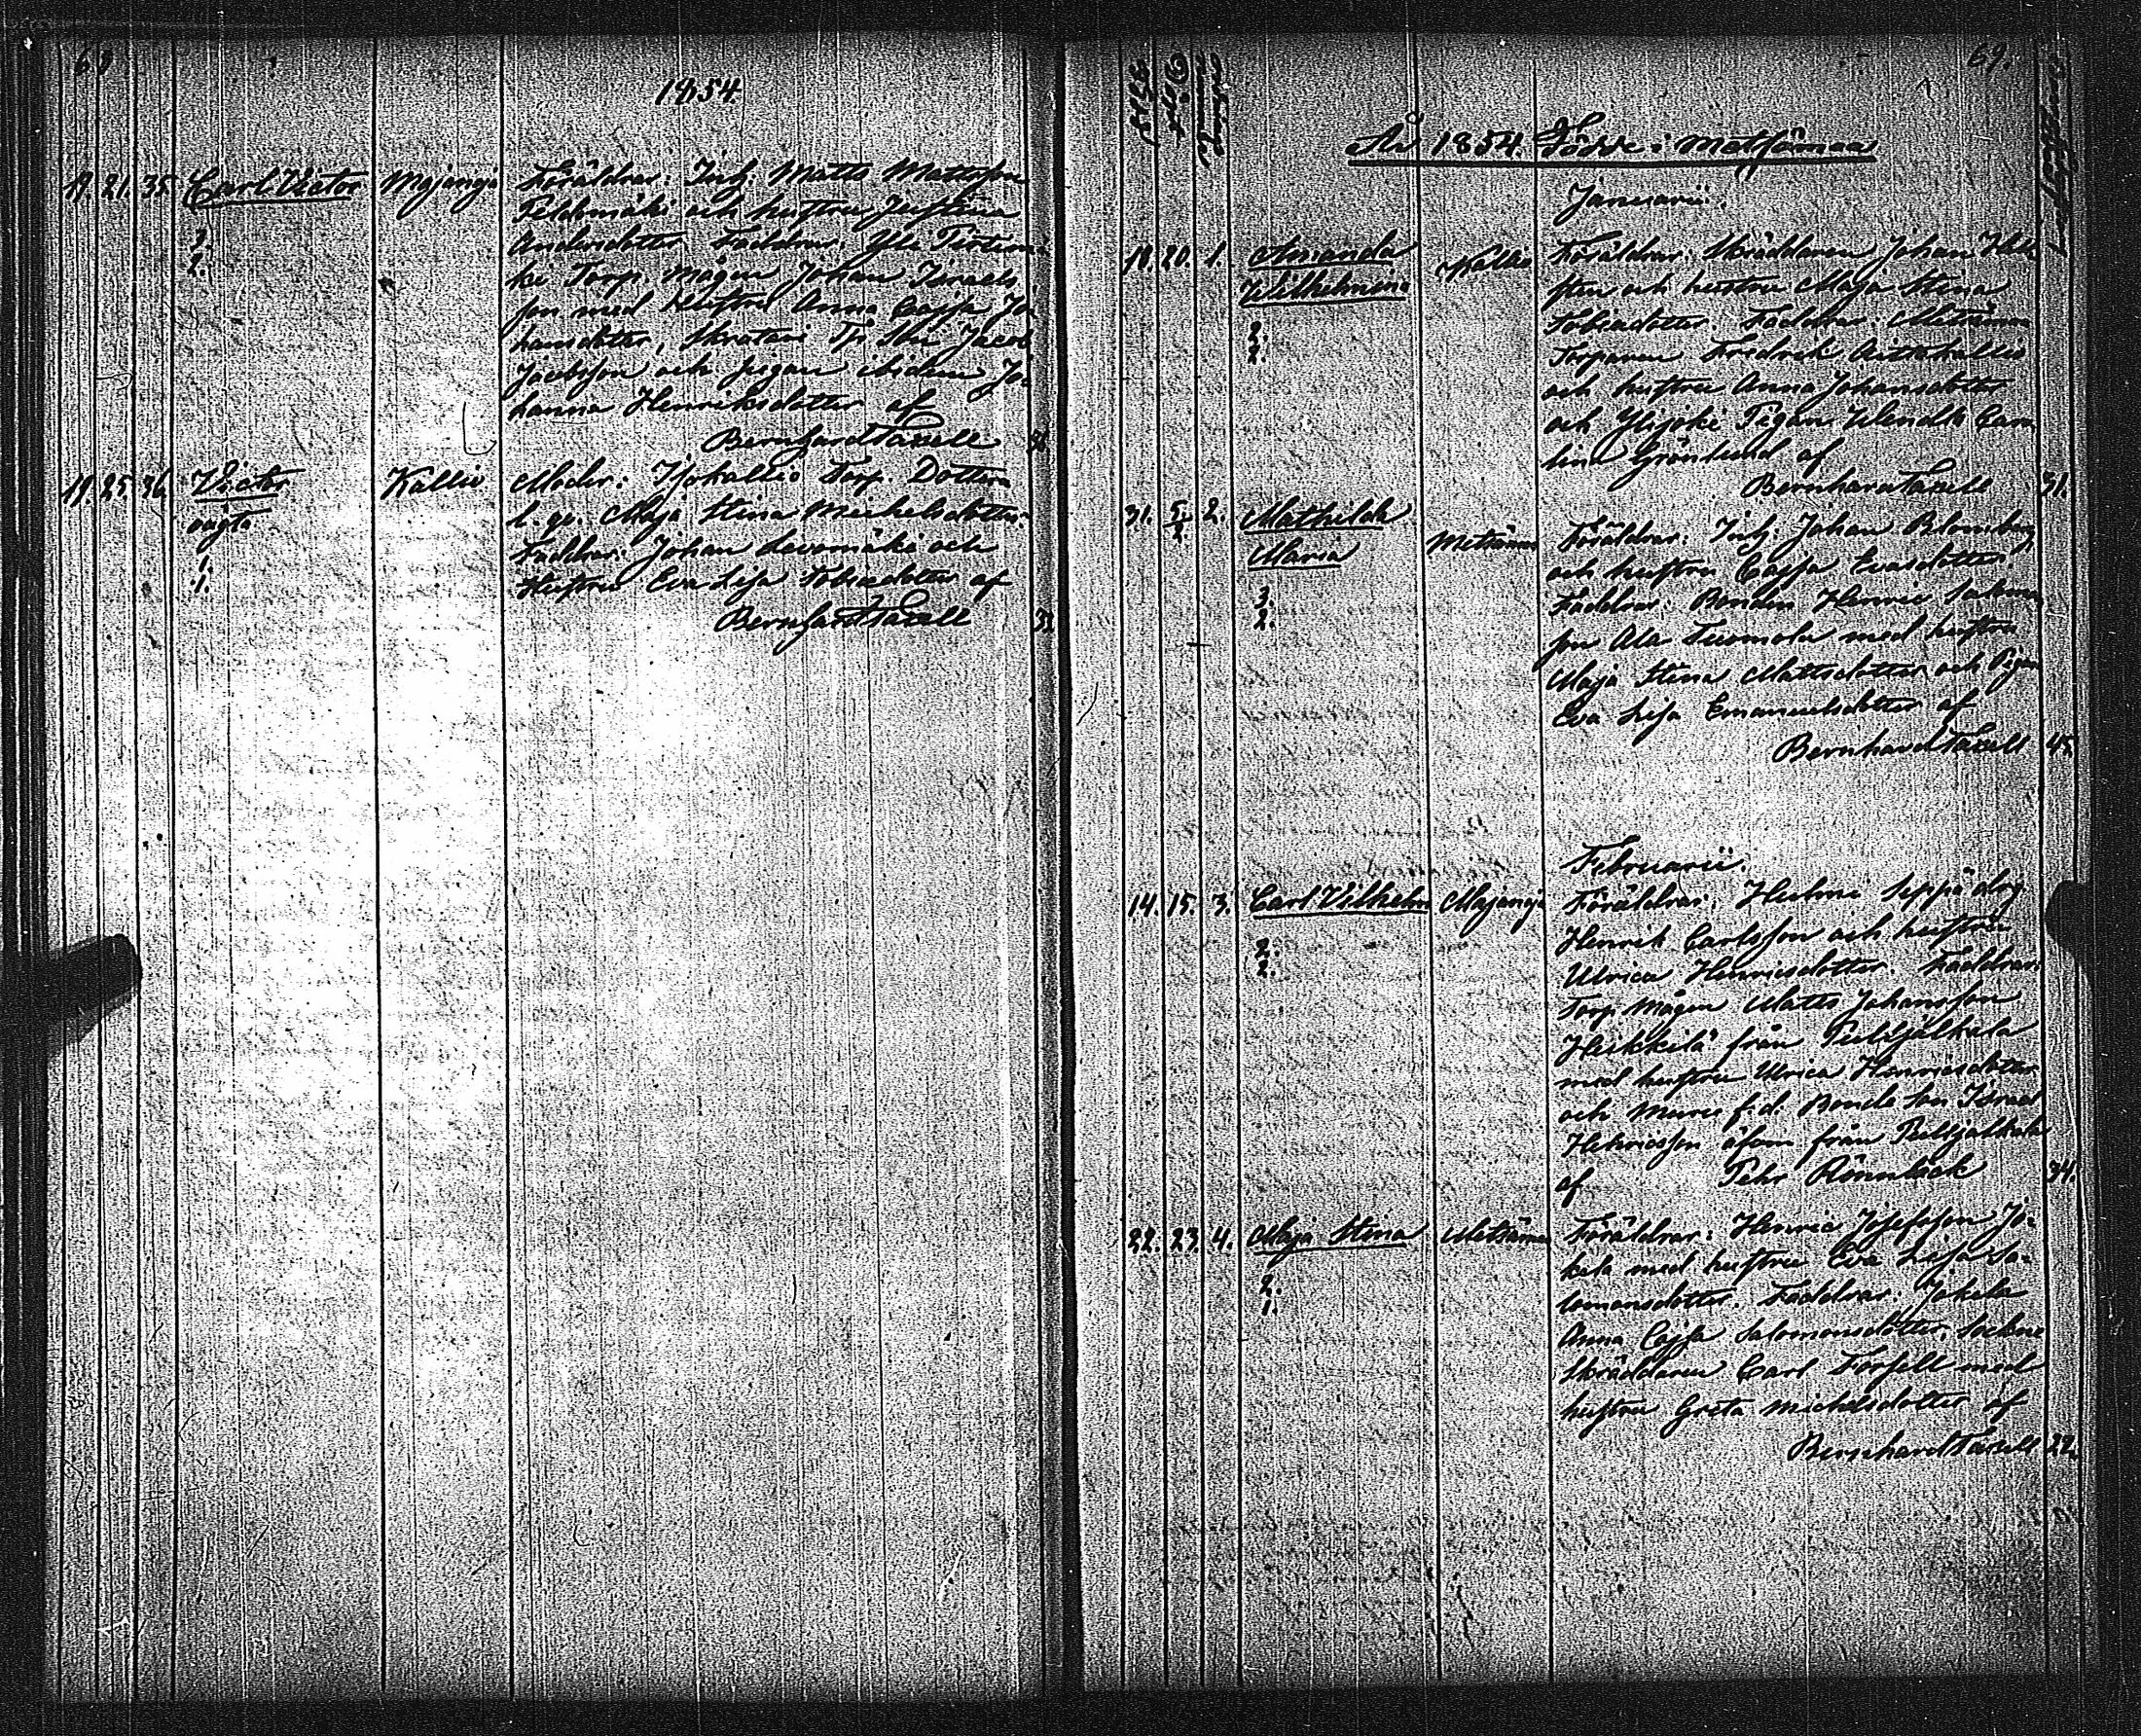 68
1854.
19. 21. 35. Carl Victor Majanoja Föräldrar: Inh: Matts Mattsson
Peldomäki och hustru Justina
3. Andersdotter Faddrar: Yli
2. Torp. Mågen Johan Israels
son med Hustru Anna Cajsa Jo
hansdotter, Jacob
Jacobsson och pigan ibidem Jo-
hanna Henriksdotter af
Bernhard Taxell
19. 25. 36. Victor Kallio Moder: Isokallio Torp. Dotter
oägta Maja Stina Michelsdotter
Faddrar: Johan Levomäki och
1. Hustru Eva Lisa Tobiedotter af
1.
Bernhard Taxell
69.
År 1854. Födde i Metsämaa
Januarii.
18. 20. 1. Amanda Kallio Föräldrar: Skräddaren Johan
Wilhelmina och hustru Maja Stina
3. Tobiadotter. Faddrar: Metsämaa
2. Torparen Fredrik Aittokallio
och hustru Anna Johansdotter
och Ylijoki Pigan Caro
lina Grönlund af
Bernhard Taxell 31.
31. 5/2. 2. Mathilda Metsämaa Föräldrar: Inh: Johan Blomberg
Maria och hustru Cajsa Evasdotter.
3. Faddrar: Bonden Henric Salomo
2. son Ala Tuomola med hustru
Maja Stina Mattsdotter och Pigan
Eva Lisa Emanuelsdotter af
Bernhard Taxell 45.
Februarii.
14. 15. 3. Carl Vilhelm Majanoja Föräldrar: Seppä drg.
2. Henrik Carlsson och hustru
2. Ulrica Henricsdotter. Faddrar:
Torp Mågen Matts Johansson
Heikkilä från
med hustru Ulrica Henricsdotter
och f.d. Bonde Son Israel
Henricsson äfven från
af Pehr Rönnbäck 34.
22. 23. 4. Maja Stina Metsämaa Föräldrar: Henric Josefsson Jo-
kela med hustru Eva Lisa Sa-
2. lomonsdotter. Faddrar: Jokela
1. Anna Cajsa Salomonsdotter, Sockne
Skräddaren Carl Forsell med
hustru Greta Michelsdotter af
Bernhard Taxell 22.